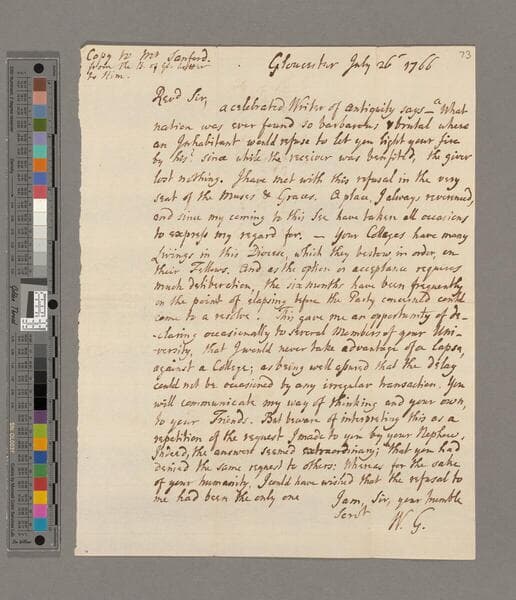 Copy to Mr Sanford.
from the B. of Gl:
to Him.
73
Gloucester July 26th 1766
Revd Sir,
a celebrated Writer of antiquity says — "What
nation was ever found so barbarous & brutal where
an Inhabitant would refuse to let you light your fire
by his! since while the receiver was benefited, the giver
lost nothing. I have met with this refusal in the very
seat of the Muses & Graces. A place, I always reverenced,
and since my coming to this See have taken all occasions
to express my regard for. — Your Colleges have many
Livings in this Diocese, which they bestow in order, on
their Fellows. And as the option or acceptance requires
much deliberation, the six months have been frequently
on the point of elapsing before the Party concerned could
come to a resolve. This gave me an opportunity of de-
claring occasionally to several Members of your Uni-
versity, that I would never take advantage of a Lapse,
against a College; as being well assured that the delay
could not be occasioned by any irregular transaction. You
will communicate my way of thinking and your own,
to your Friends. But beware of interpreting this as a
repetition of the request I made to you by your Nephew.
Indeed, the answer seemed extraordinary; that you had
denied the same request to others: Whereas for the sake
of your humanity, I could have wished that the refusal to
me had been the only one
I am, Sir, your humble
Servt
W. G.